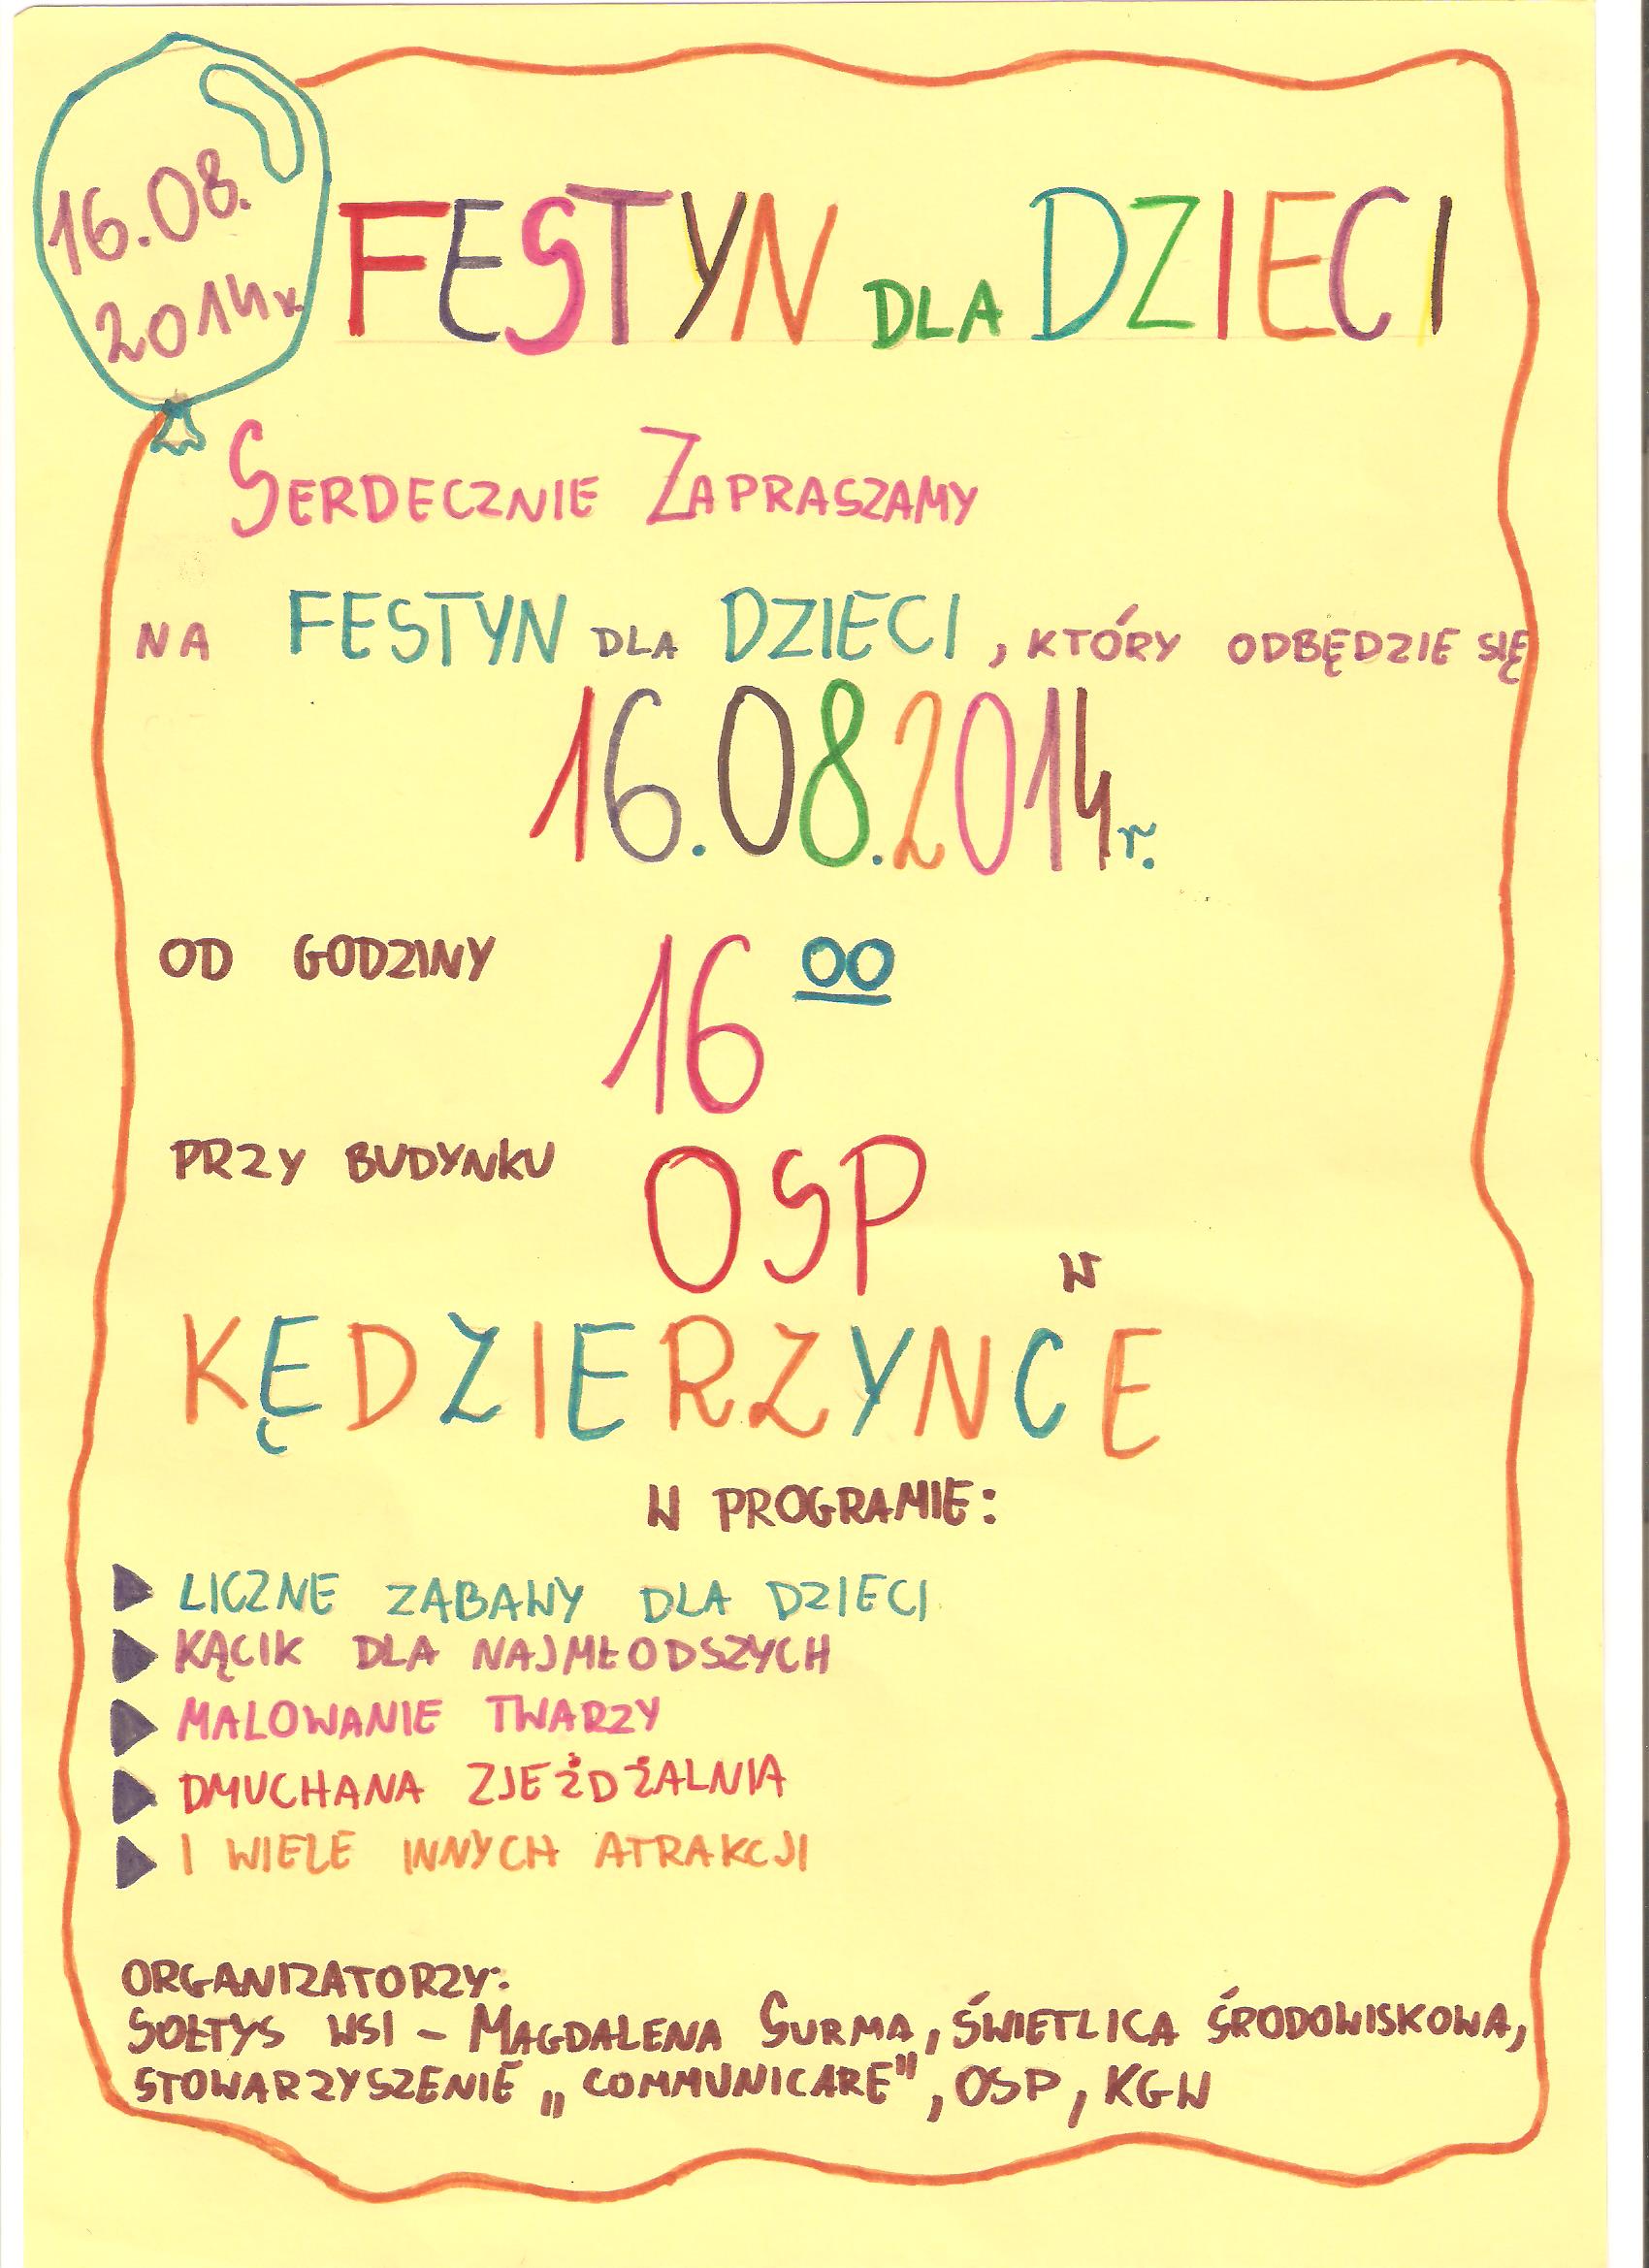 16.08.
2014r.
FESTYN DLA DZIECI
SERDECZNIE ZAPRASZAMY
NA FESTYN DLA DZIECI, KTÓRY ODBĘDZIE SIĘ
16.08.2014r.
OD GODZINY 16 00
PRZY BUDYNKU OSP
W
KĘDZIERZYNCE
W PROGRAMIE:
▶ LICZNE ZABAWY DLA DZIECI
▶ KĄCIK DLA NAJMŁODSZYCH
▶ MALOWANIE TWARZY
▶ DMUCHANA ZJEŻDŻALNIA
▶ I WIELE INNYCH ATRAKCJI
ORGANIZATORZY:
SOŁTYS WSI – MAGDALENA SURMA, ŚWIETLICA ŚRODOWISKOWA,
STOWARZYSZENIE „COMMUNICARE", OSP, KGW